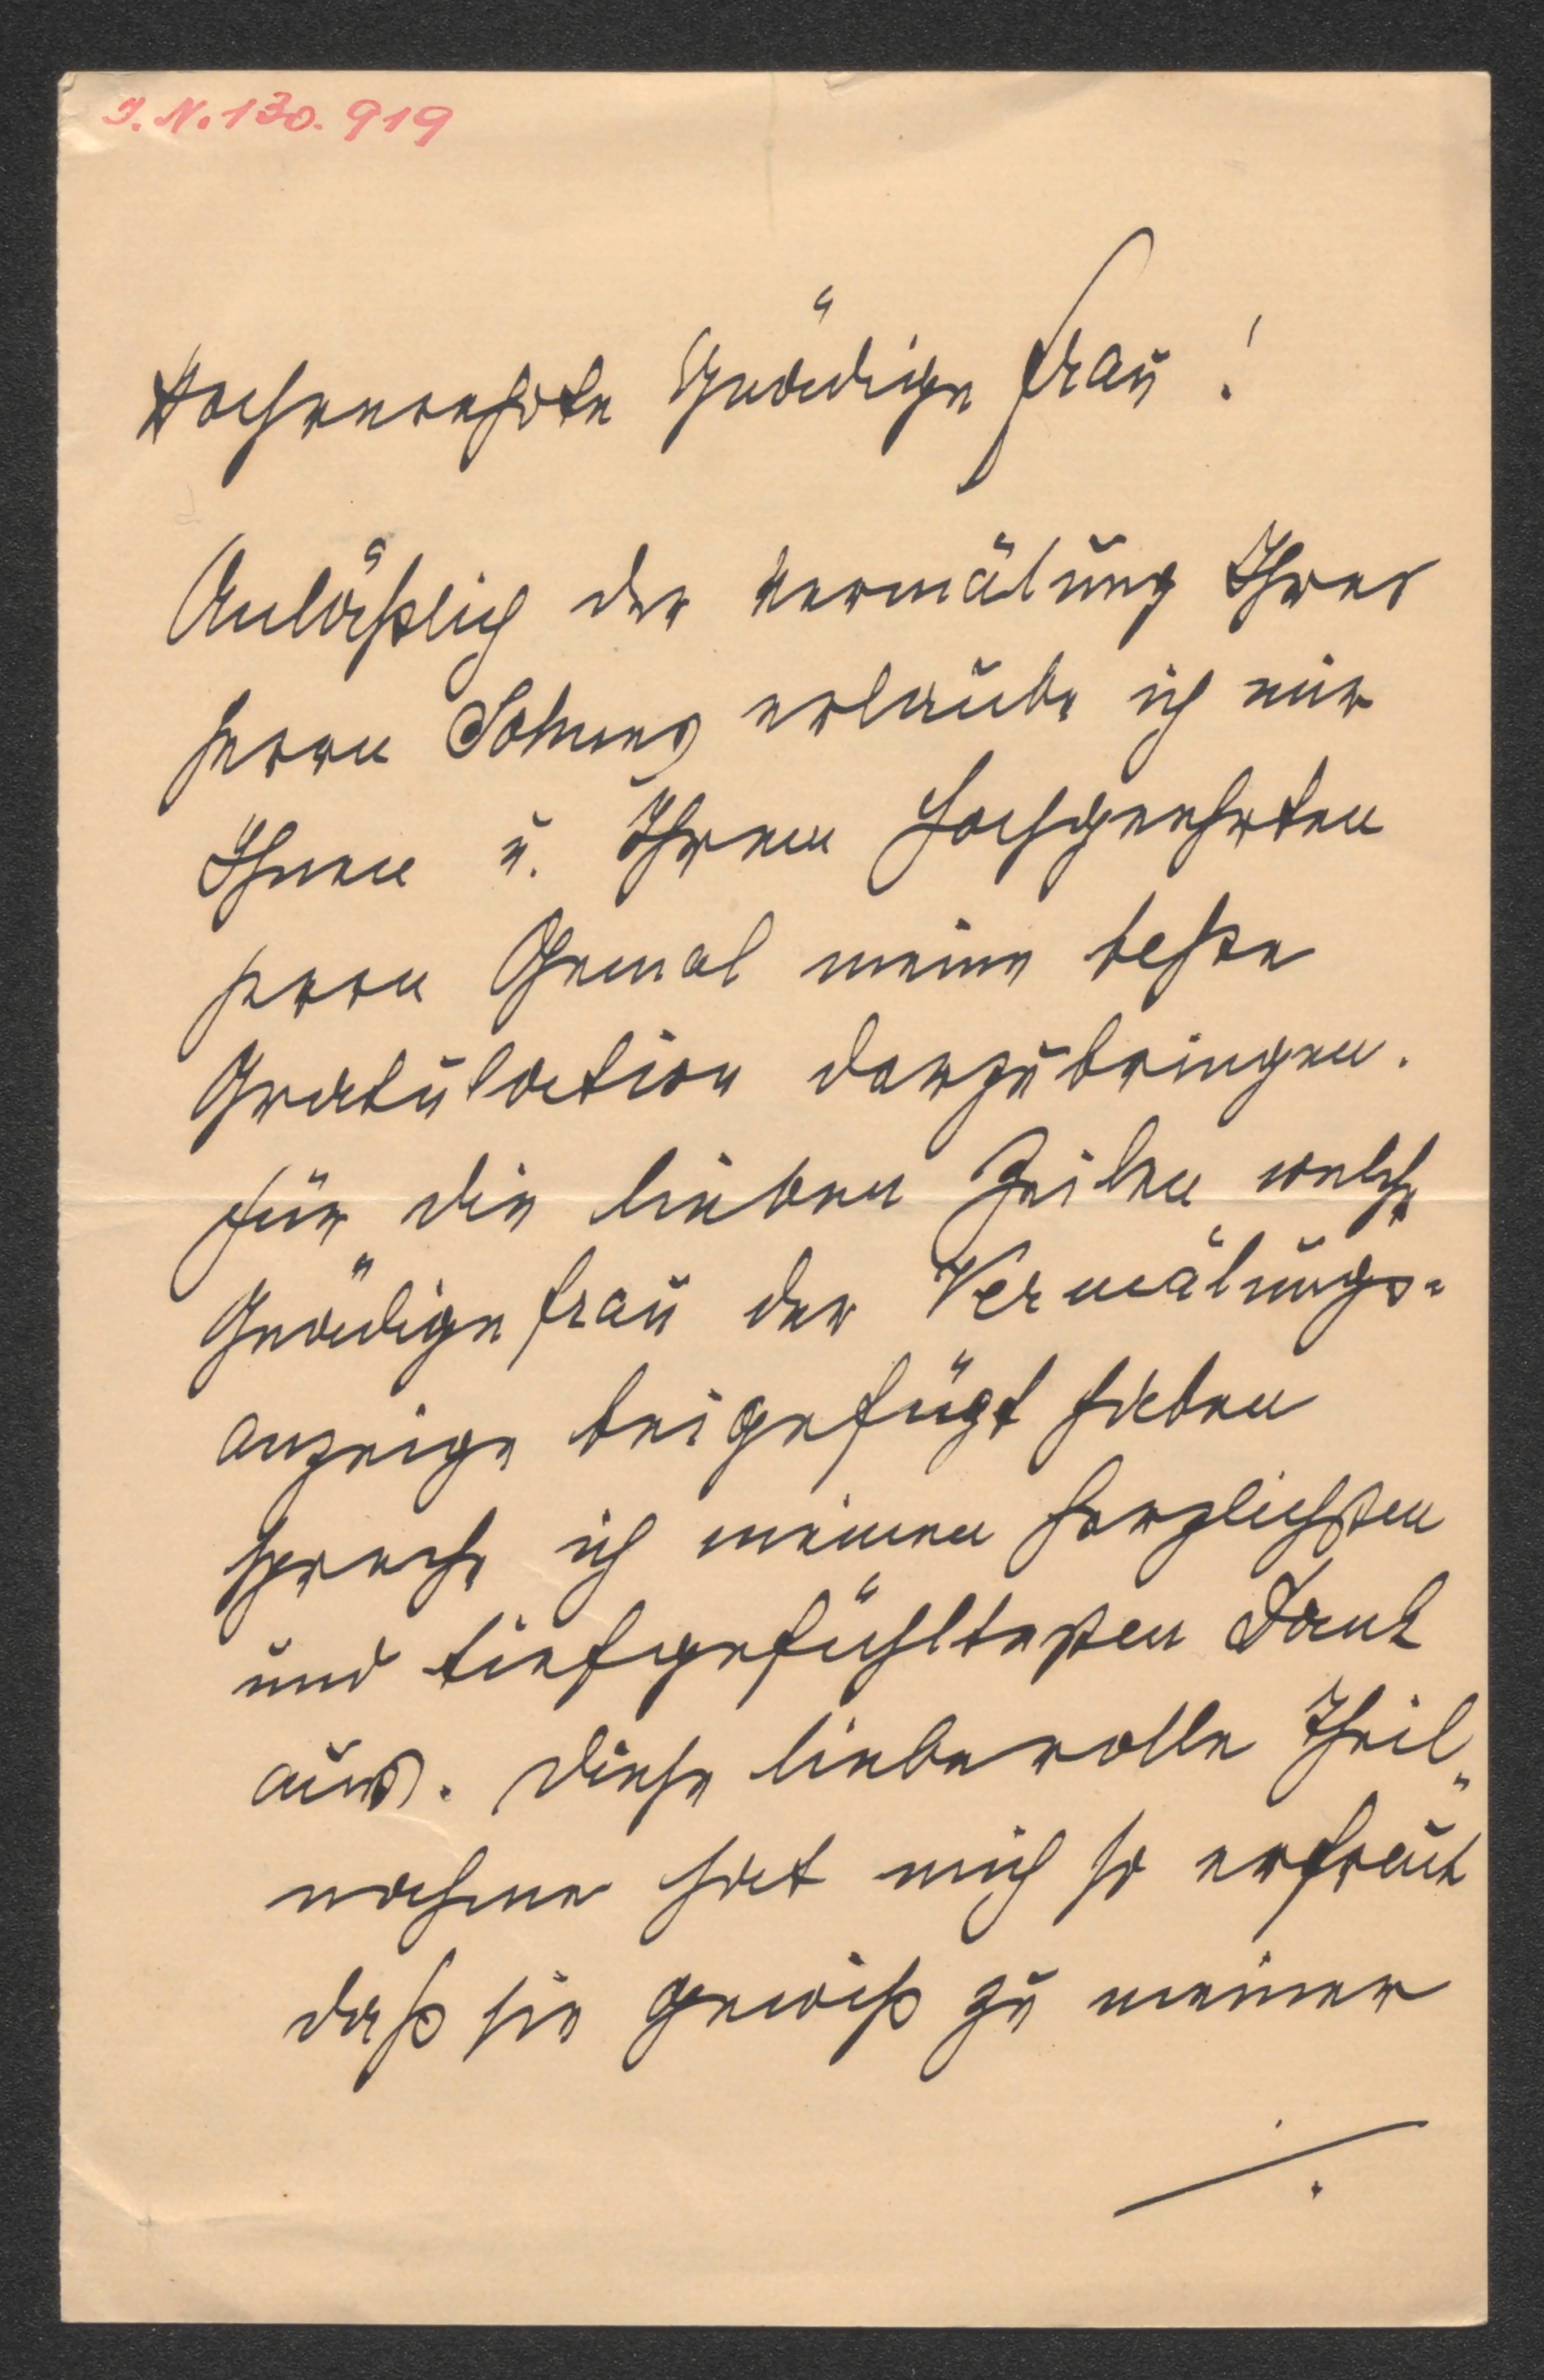 I. N. 130.919
Hochverehrte Gnädige Frau!
Anläßlich der Vermälung Ihres
Herrn Sohnes erlaube ich mir
Ihnen u. Ihrem hochgeehrten
Herrn Gemal meine beste
Gratulation darzubringen.
Für die lieben Zeilen welche
Gnädige Frau der Vermälungs-
anzeige beigefügt haben
spreche ich meinen herzlichsten
und tiefgefühltesten Dank
aus. Diese liebevolle Theil-
nahme hat mich so erfreut
daß sie gewiß zu meiner
./.